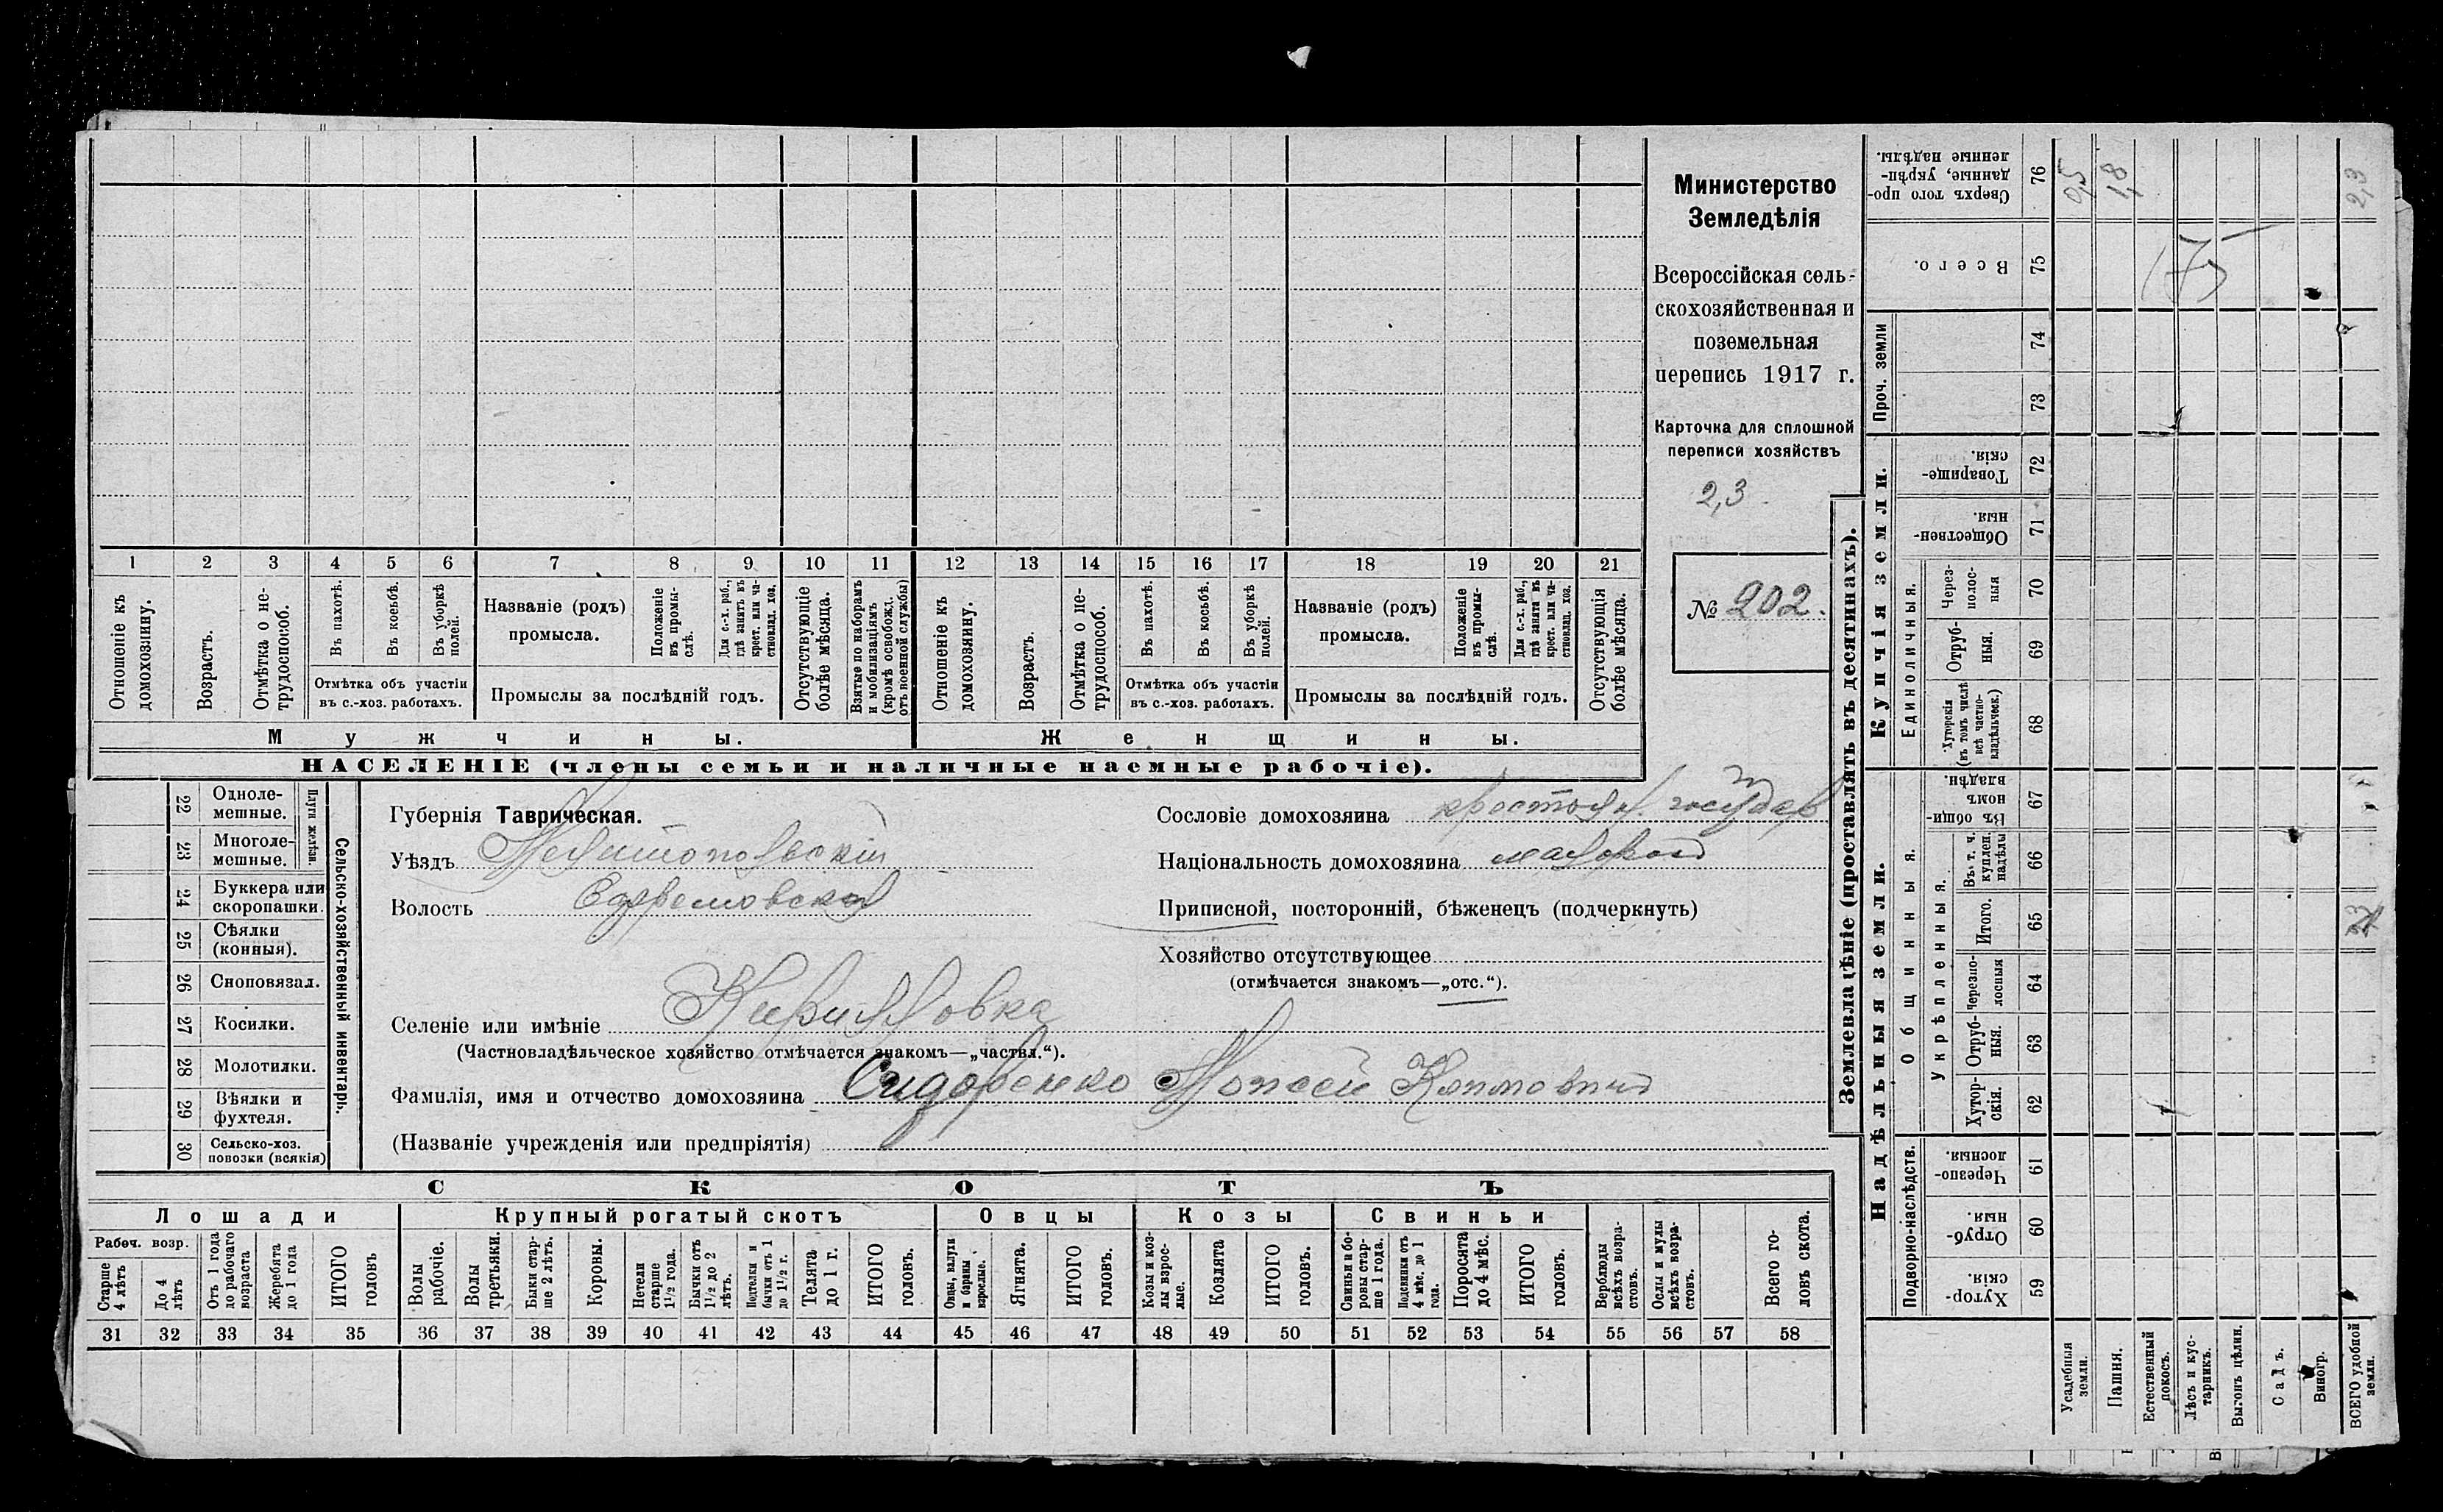 Министерство
Земледѣлія
Всероссійская сель-
скохозяйственная и
поземельная
перепись 1917 г.
Карточка для сплошной
переписи хозяйствъ
2,3
№ 202.
1 2 3 4 5 6 7 8 9 10 11 12 13 14 15 16 17 18 19 20 21
Отношеніе къ домохозяину.
Возрастъ.
Отмѣтка о не-трудоспособ.
Въ пахотѣ.
Въ косьбѣ.
Въ уборкѣ полей.
Отмѣтка объ участіи
въ с.-хоз. работахъ.
Названіе (родъ)
промысла.
Положеніе въ промы-слѣ.
Для с.-х. раб., гдѣ занятъ въ крест. или ча-стновлад. хоз.
Промыслы за послѣдній годъ.
Отсутствующіе болѣе мѣсяца.
Взятые по наборамъ и мобилизаціямъ (кромѣ освобожд. отъ военной службы)
Отношеніе къ домохозяину.
Возрастъ.
Отмѣтка о не-трудоспособ.
Въ пахотѣ.
Въ косьбѣ.
Въ уборкѣ полей.
Отмѣтка объ участіи
въ с.-хоз. работахъ.
Названіе (родъ)
промысла.
Положеніе въ промы-слѣ.
Для с.-х. раб., гдѣ занята въ крест. или ча-стновлад. хоз.
Промыслы за послѣдній годъ.
Отсутствующія болѣе мѣсяца.
Мужчины.
Женщины.
НАСЕЛЕНІЕ (члены семьи и наличные наемные рабочіе).
Сельско-хозяйственный инвентарь.
Плуги желѣзн.
22 Одноле-мешные.
23 Многоле-мешные.
24 Буккера или скоропашки.
25 Сѣялки (конныя).
26 Сноповязал.
27 Косилки.
28 Молотилки.
29 Вѣялки и фухтеля.
30 Сельско-хоз. повозки (всякія)
Губернія Таврическая.
Уѣздъ Мелитопольскій
Волость Ефремовская
Селеніе или имѣніе Кирилловка
(Частновладѣльческое хозяйство отмѣчается знакомъ—„частвл.“).
Фамилія, имя и отчество домохозяина Сидоренко Моисей
(Названіе учрежденія или предпріятія)
Сословіе домохозяина
Національность домохозяина
Приписной, посторонній, бѣженецъ (подчеркнуть)
Хозяйство отсутствующее
(отмѣчается знакомъ—„отс.“).
СКОТЪ
Лошади
Крупный рогатый скотъ
Овцы
Козы
Свиньи
Рабоч. возр.
Старше 4 лѣтъ
До 4 лѣтъ
Отъ 1 года до рабочаго возраста
Жеребята до 1 года
ИТОГО головъ
Волы рабочіе.
Волы третьяки.
Быки стар-ше 2 лѣтъ.
Коровы.
Нетели старше 1½ года.
Бычки отъ 1½ до 2 лѣтъ.
Подтелки и бычки отъ 1 до 1½ г.
Телята до 1 г.
ИТОГО головъ.
Овцы, валухи и бараны взрослые.
Ягнята.
ИТОГО головъ.
Козы и коз-лы взрос-лые.
Козлята
ИТОГО головъ.
Свиньи и бо-ровы стар-ше 1 года.
Подсвинки отъ 4 мѣс. до 1 года.
Поросята до 4 мѣс.
ИТОГО головъ.
Верблюды всѣхъ возра-стовъ.
Ослы и мулы всѣхъ возра-стовъ.
Всего го-ловъ скота.
31 32 33 34 35 36 37 38 39 40 41 42 43 44 45 46 47 48 49 50 51 52 53 54 55 56 57 58
Землевладѣніе (проставлять въ десятинахъ).
Надѣльныя земли.
Купчія земли.
Проч. земли
Подворно-наслѣдств.
Общинныя.
Укрѣпленныя.
Единоличныя.
Хутор-скія. 59
Отруб-ныя. 60
Черезпо-лосныя. 61
Хутор-скія. 62
Отруб-ныя. 63
Черезпо-лосныя 64
Итого. 65
Въ т. ч. куплен. надѣлы 66
Въ общи-номъ владѣн. 67
Хуторскія (въ томъ числѣ всѣ частно-владѣльческ.) 68
Отруб-ныя. 69
Через-полос-ныя 70
Обществен-ныя. 71
Товарище-скія. 72
73
74
Всего. 75
Сверхъ того про-данные, укрѣп-ленные надѣлы. 76
Усадебныя земли.
Пашня.
Естественный покосъ.
Лѣсъ и кус-тарникъ.
Выгонъ цѣлин.
Садъ.
Виногр.
ВСЕГО удобной земли.
0,5
1,8
2,3